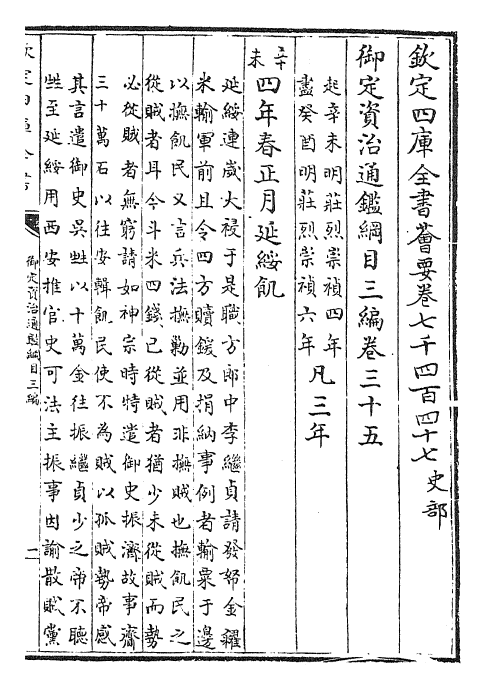 欽定四庫全書薈要卷七千四百四十七史部
御定資治通鑑綱目三編卷三十五
起辛未明莊烈崇禎四年
盡癸酉明莊烈崇禎六年
凡三年
辛未
四年春正月延綏飢
延綏連歲大祲于是職方郎中李繼貞請發帑金糴
米輸軍前且令四方贖鍰及捐納事例者輸粟于邊
以撫飢民又言兵法撫勦並用非撫賊也撫飢民之
從賊者耳今斗米四錢已從賊者猶少未從賊而勢
必從賊者無窮請如神宗時特遣御史振濟故事齎
三十萬石以往安輯飢民使不為賊以孤賊勢帝感
其言遣御史吳甡以十萬金往振繼貞少之帝不聽
甡至延綏用西安推官史可法主振事因諭散賊黨
欽定四庫全書
御定資治通鑑綱目三編
一